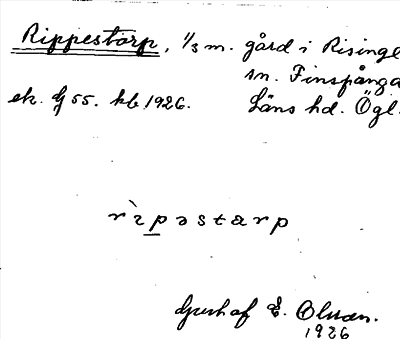 Rippestorp, 1/3 m. gård i Risinge
sn. Finspånga
ek. G 55. kb 1926. Läns hd. Ögl.
rìpəstarp
Gustaf E. Olsson.
1926